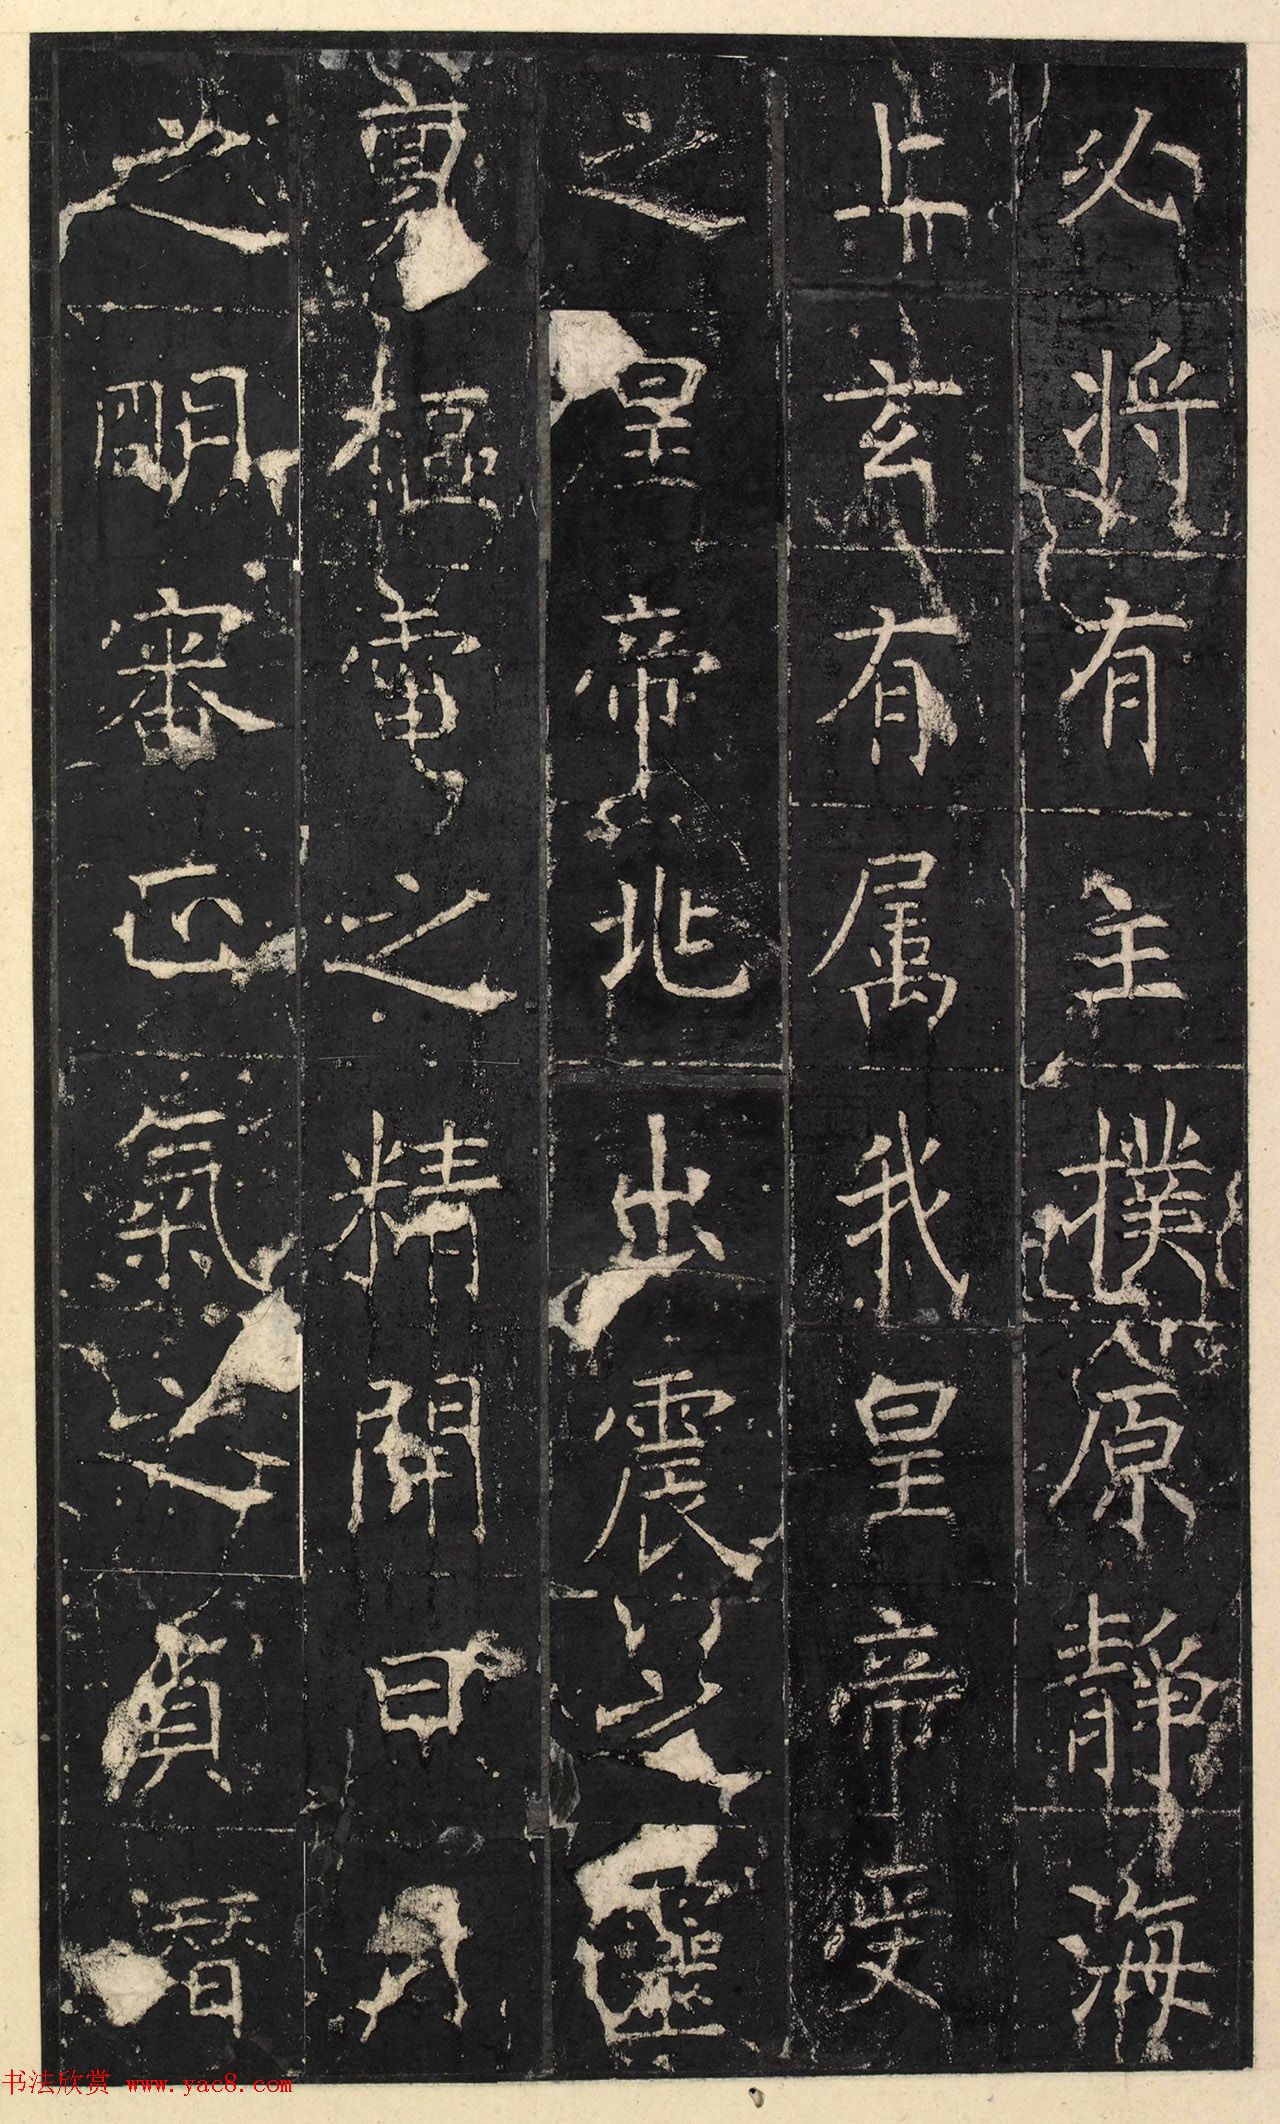 必將有主撲原靜海
上玄有属我皇帝受
之皇帝北出震以靈
樞電之精開日月
之明審正氣之質曆
书法欣赏 www.yac8.com